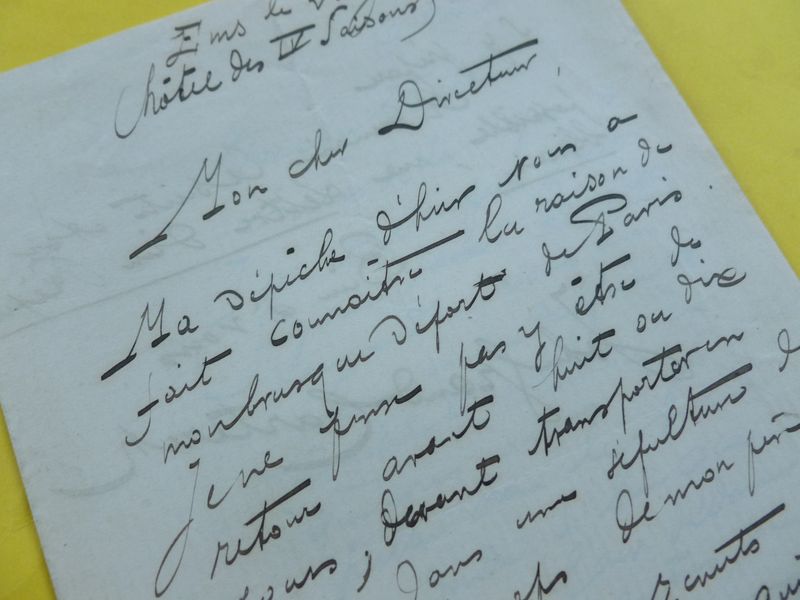 Ems le
hôtel des IV Saisons)
Mon cher Directeur,
Ma dépêche d'hier vous a
fait connaître la raison de
mon brusque départ de Paris.
Je ne pense pas y être de
retour avant huit ou dix
jours, devant transporter en
dans une sépulture d
demon père